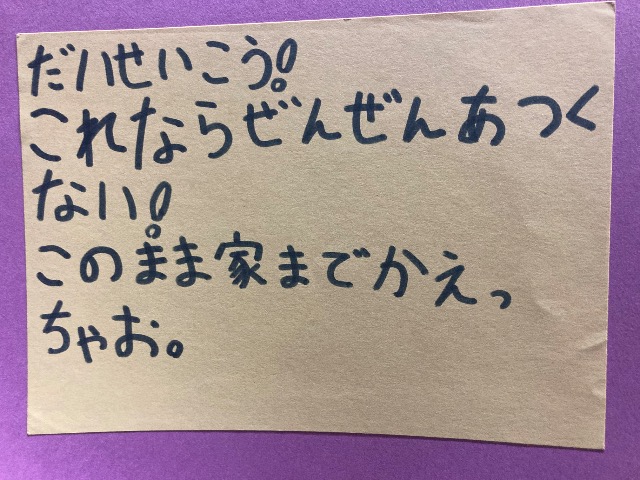 だいせいこう!
これならぜんぜんあつく
ない!
このまま家までかえっ
ちゃお。